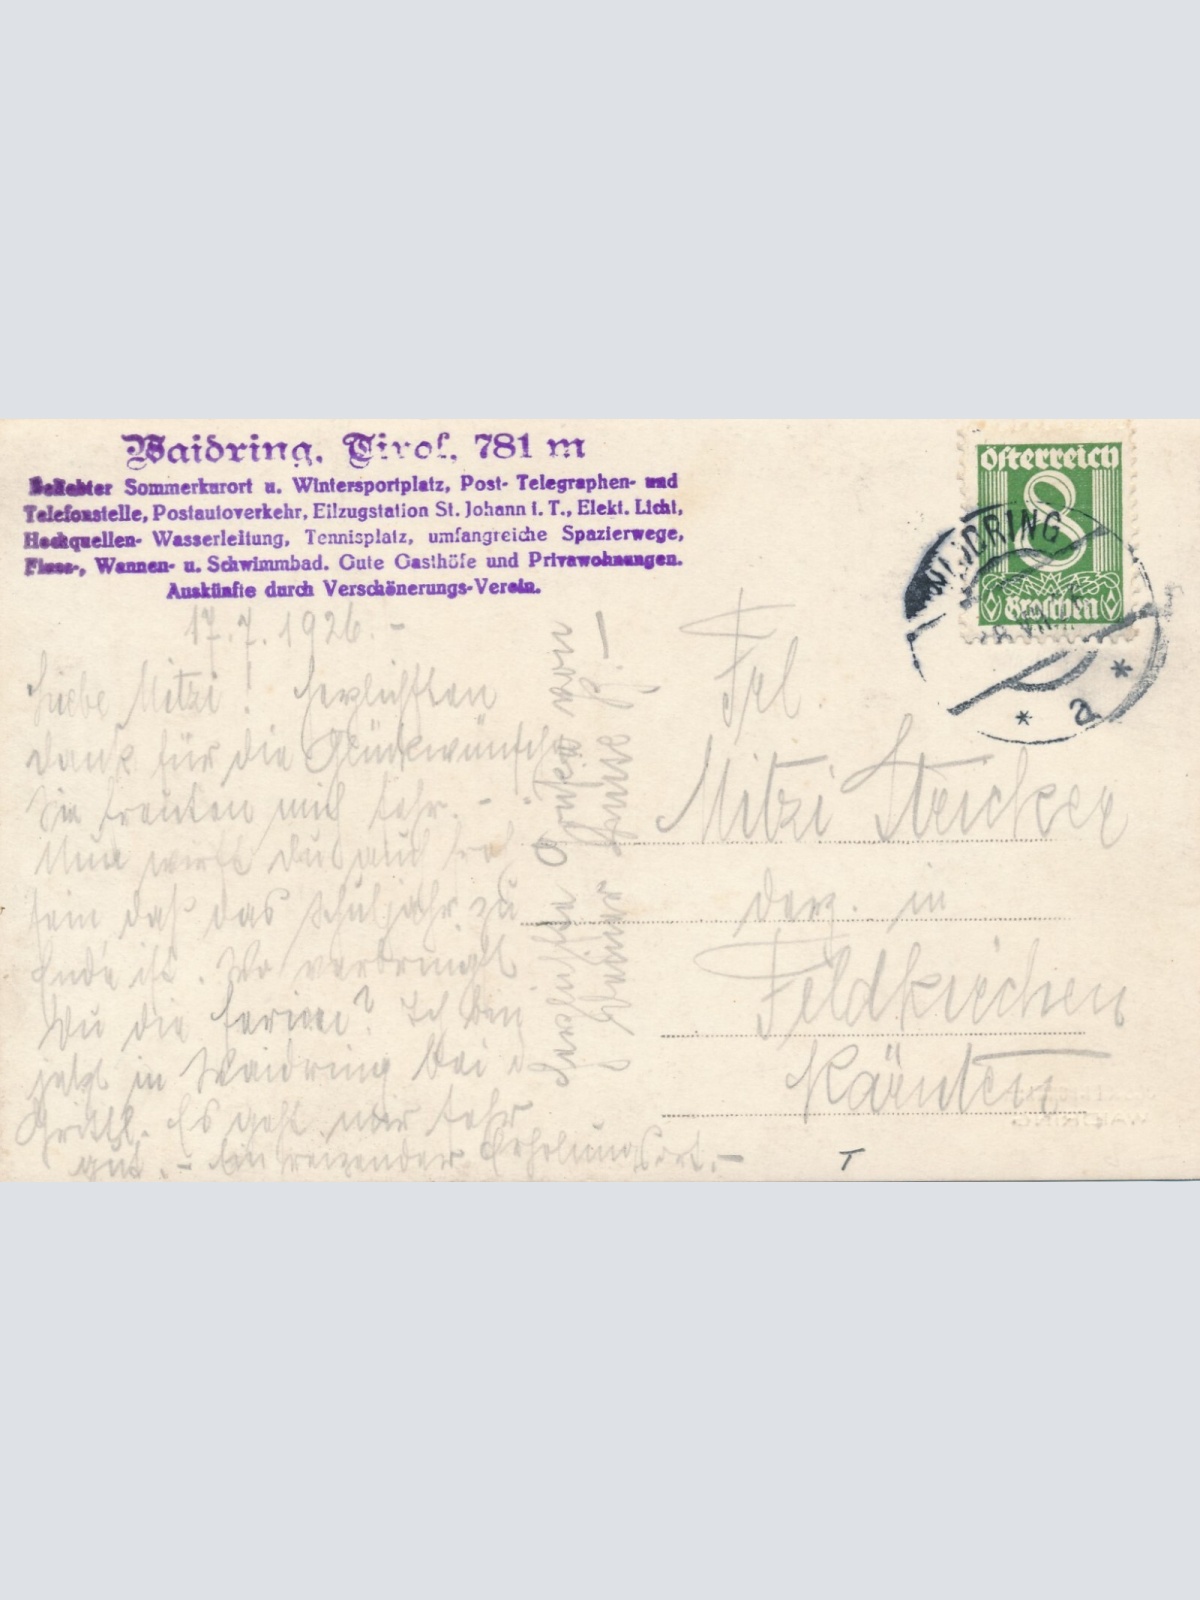 Waidring, Tirol, 781 m
Beliebter Sommerkurort u. Wintersportplatz, Post- Telegraphen- und
Telefonstelle, Postautoverkehr, Eilzugstation St. Johann i. T., Elekt. Licht,
Hochquellen- Wasserleitung, Tennisplatz, umfangreiche Spazierwege,
Fluss-, Wannen- u. Schwimmbad. Gute Gasthöfe und Privawohnungen.
Auskünfte durch Verschönerungs-Verein.
17.7.1926.-
Liebe Mitzi! Herzlichsten
Dank für die Glückwünsche
Sie freuten mich sehr. -
Nun wirst Du auch froh
sein daß das Schuljahr zu
Ende ist. Wo verbringst
Du die Ferien? Ich bin
jetzt in Waidring bei
Es geht mir sehr
gut. - Ein reizender Erholungsort. -
Herzlichste Grüße von
Deiner
österreich
8
Groschen
WAIDRING
* a *
Frl
Mitzi Stricker
derz. in
Feldkirchen
Kärnten
WAIDRING
T